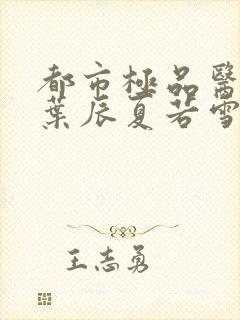 都市極品醫
葉辰夏若雪
王志勇